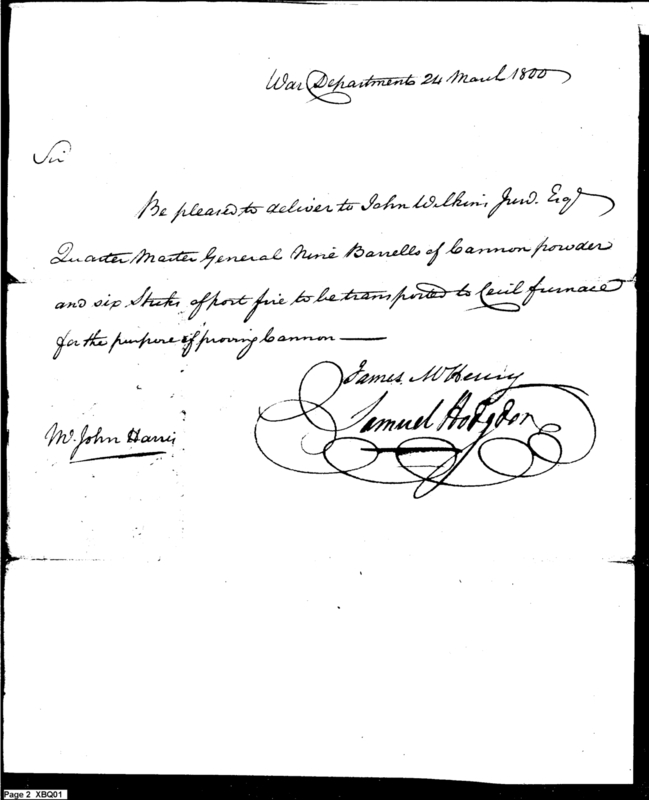 War Department 24 March 1800
Sir
Be pleased to deliver to John Wilkins Junr. Esqr
Quarter Master General Nine Barrells of Cannon powder
and six Sticks of port fire to be transported to Cecil furnace
for the purpose of proving Cannon —
James McHenry
Samuel Hodgdon
Mr. John Harris
Page 2 XBQ01